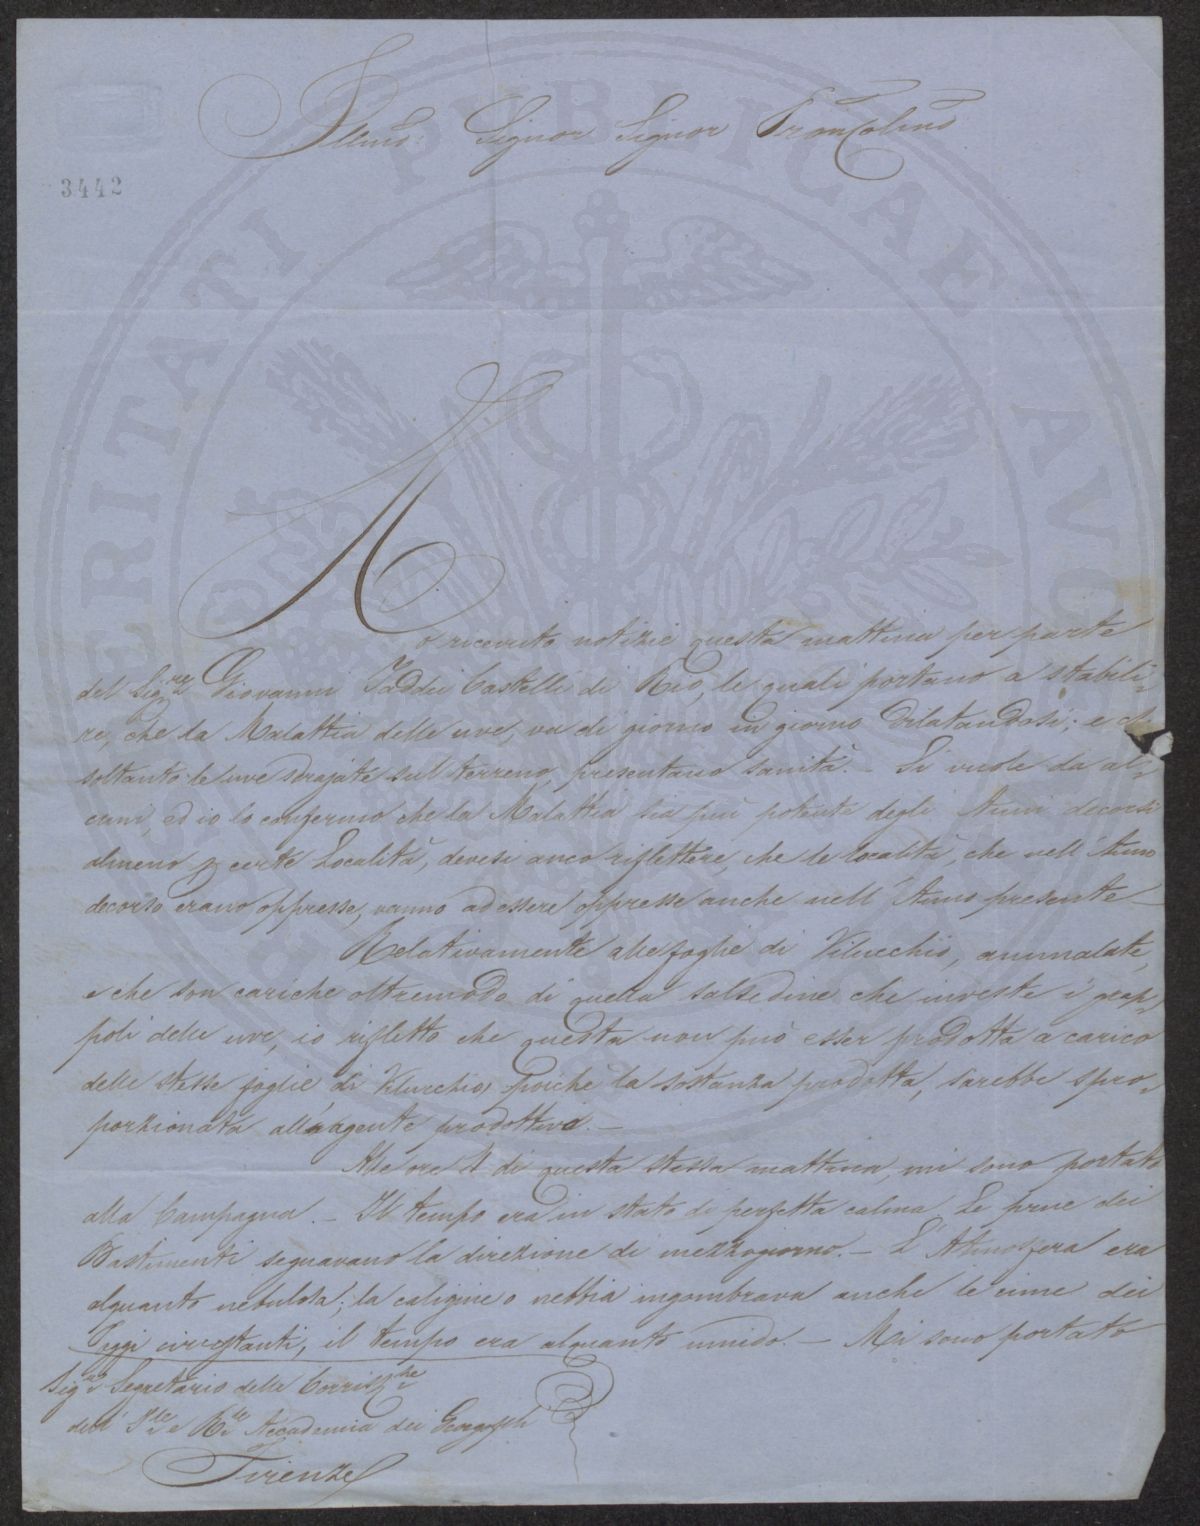 Illmo: Signor Signor Pron Colmo
3442
Ò ricevuto notizie questa mattina per parte
del Sigre Giovanni Taddei Castelli di Rio, le quali portano a stabili=
re, che la Malattia delle uve, va di giorno in giorno dilatandosi; e che
soltanto le uve sdrajate sul terreno, presentano sanità. — Si vuole da al=
cuni, ed io lo confermo che la Malattia sia più potente degli Anni decorsi
almeno p certe Località, devesi anco riflettere, che le località, che nell'Anno
decorso erano oppresse, vanno ad essere oppresse anche nell'Anno presente —
Relativamente alle foglie di Vilucchio, ammalate,
e che son cariche oltremodo di quella salsedine che investe i grap=
poli delle uve, io rifletto che questa non può esser prodotta a carico
delle stesse foglie di Vilucchio, poiche la sostanza prodotta, sarebbe spro=
porzionata all'agente produttivo. —
Alle ore 4 di questa stessa mattina, mi sono portato
alla Campagna. — Il tempo era in stato di perfetta calma. Le prue dei
Bastimenti segnavano la direzione di mezzogiorno. — L'Atmosfera era
alquanto nebulosa; la caligine o nebbia ingombrava anche le cime dei
Poggi circostanti, il tempo era alquanto umido. — Mi sono portato
Sigr Segretario delle Corrispe
dell' Ite e Rle Accademia dei Georgofili
Firenze
PROSPERITATI PUBLICAE AUGENDAE